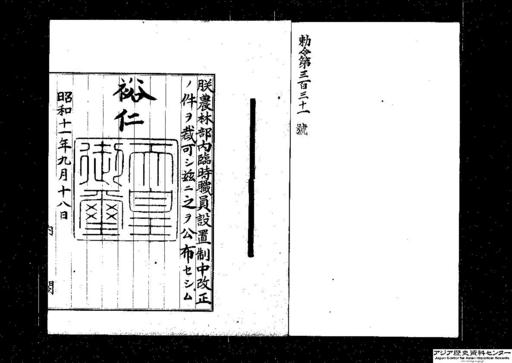 勅令第三百三十一號
朕農林部内臨時職員設置制中改正
ノ件ヲ裁可シ玆ニ之ヲ公布セシム
裕仁
天皇御璽
昭和十一年九月十八日
内閣
アジア歴史資料センター
Japan Center for Asian Historical Records